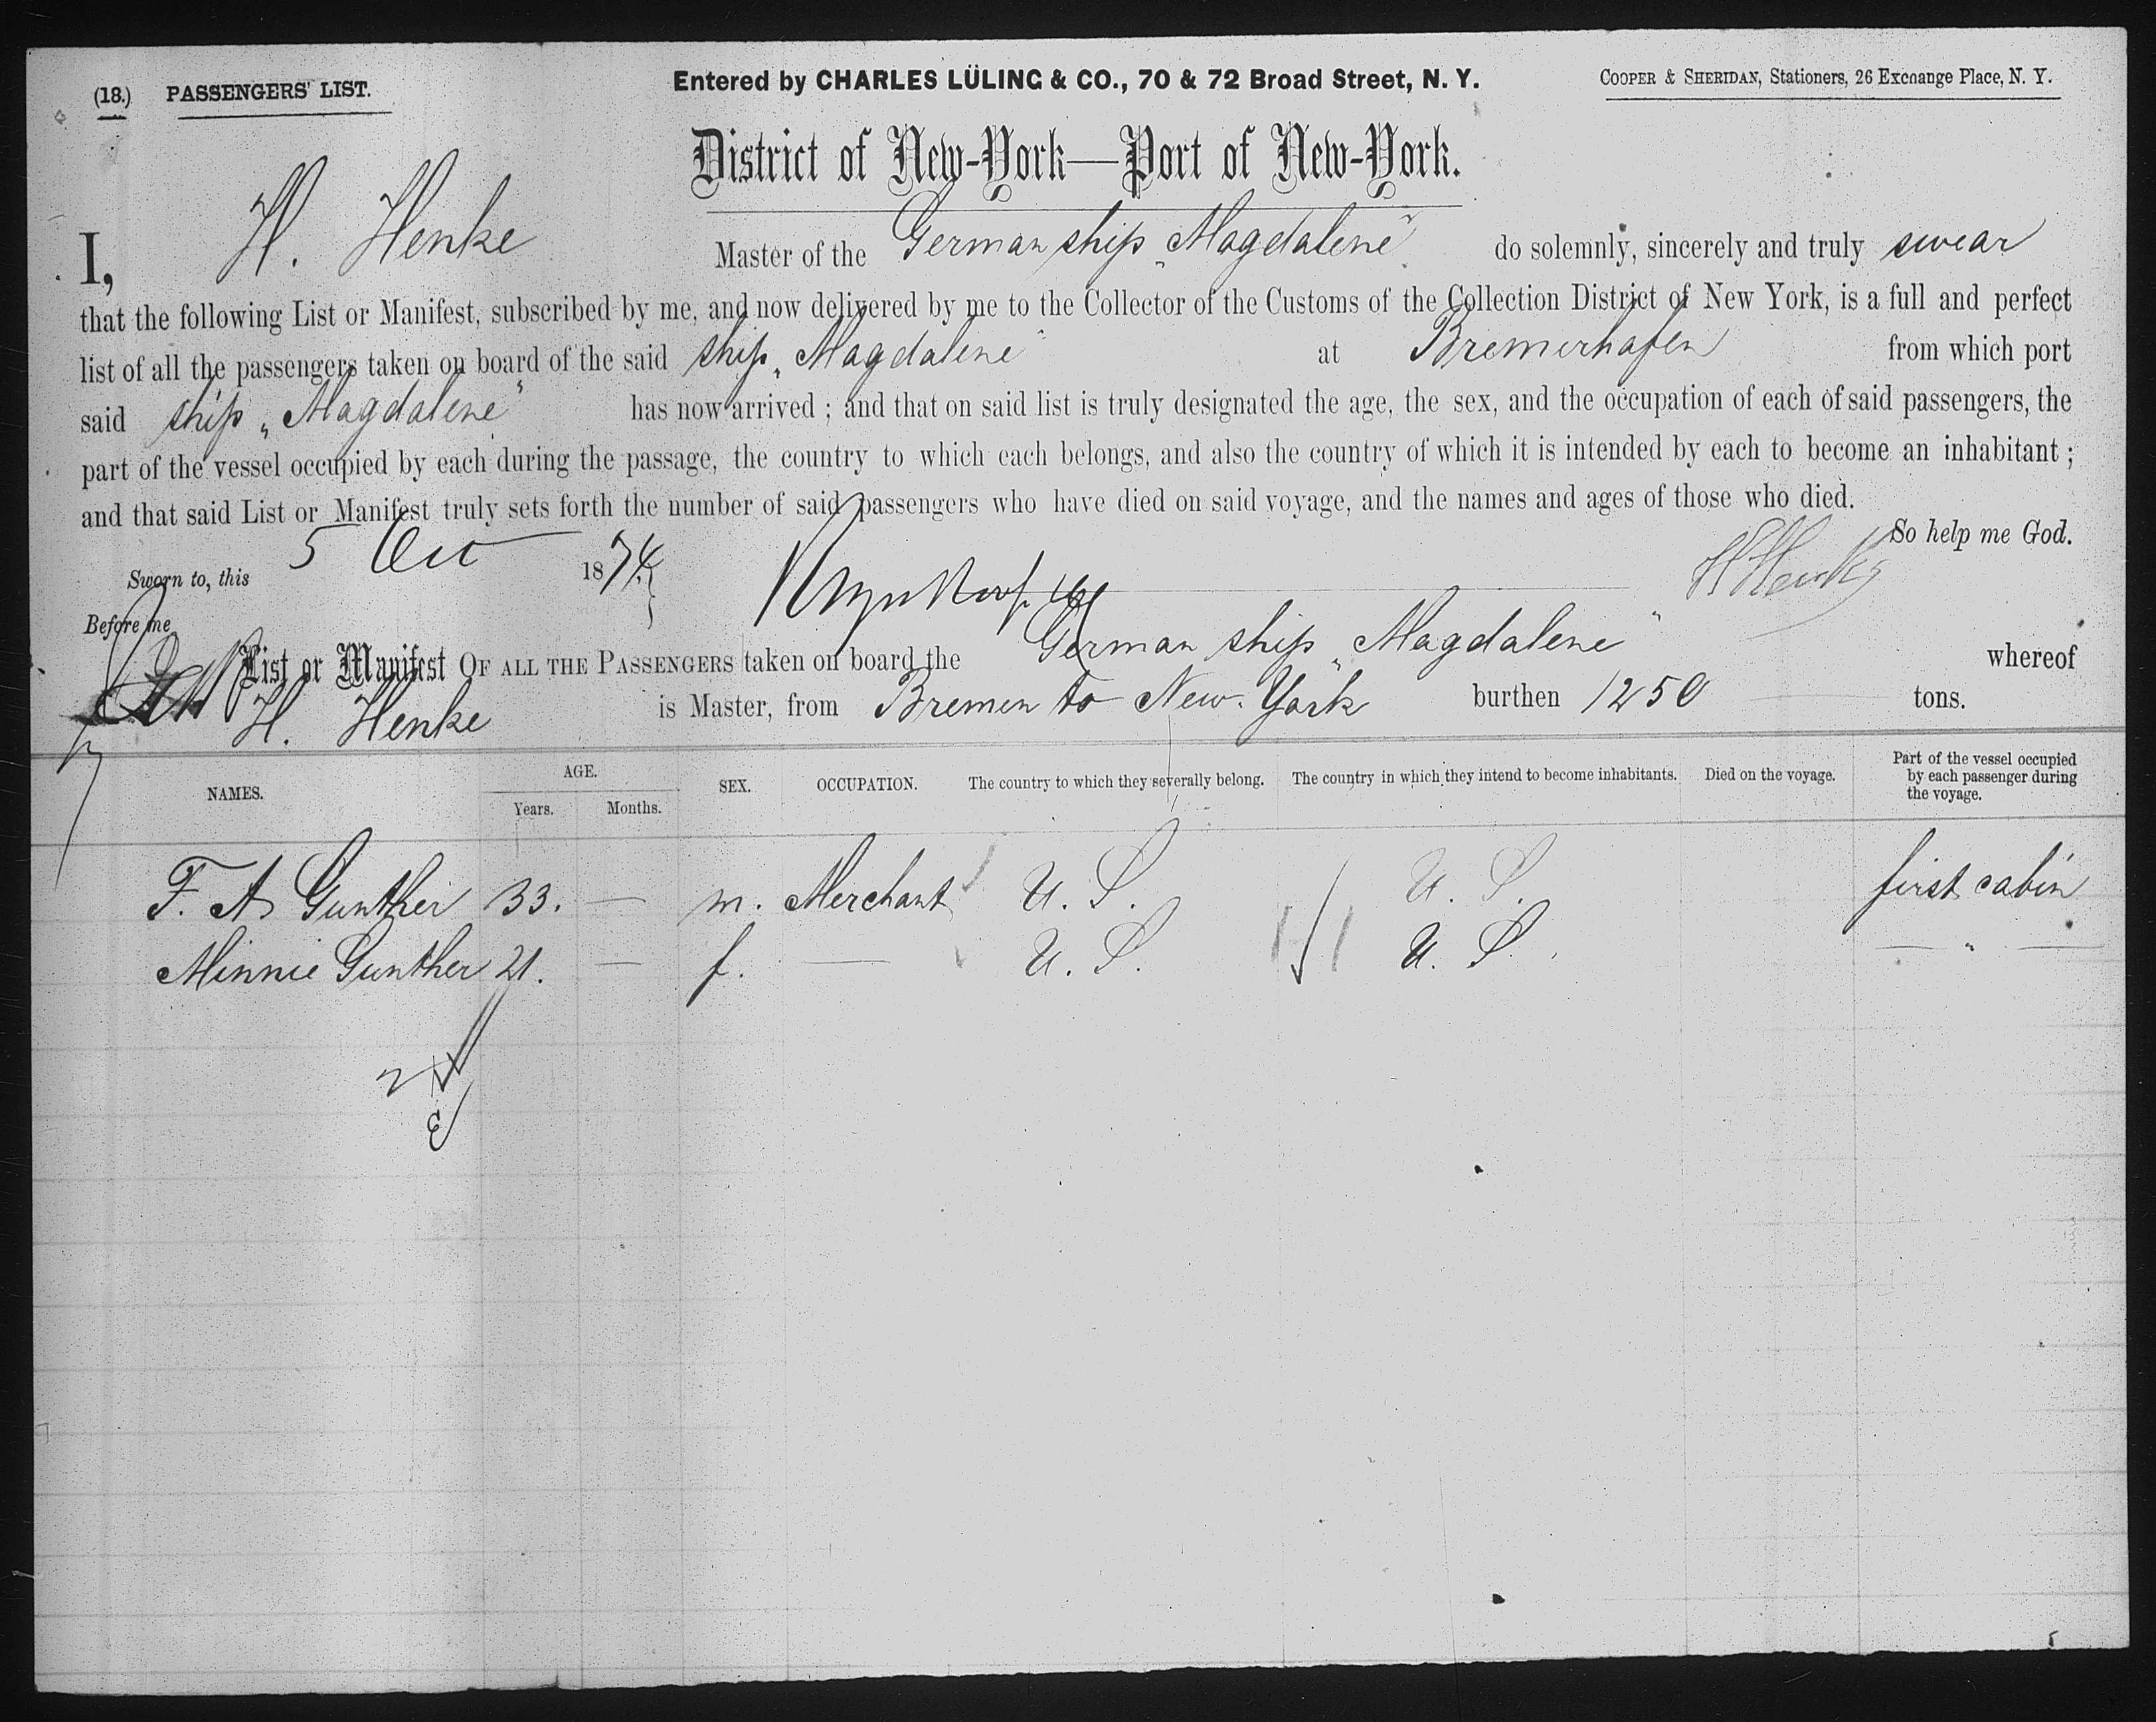 (18.) PASSENGERS' LIST.
Entered by CHARLES LÜLING & CO., 70 & 72 Broad Street, N. Y.
COOPER & SHERIDAN, Stationers, 26 Exchange Place, N. Y.
District of New-York—Port of New-York.
I, H. Henke Master of the German ship „Magdalene" do solemnly, sincerely and truly swear
that the following List or Manifest, subscribed by me, and now delivered by me to the Collector of the Customs of the Collection District of New York, is a full and perfect
list of all the passengers taken on board of the said ship „Magdalene" at Bremerhafen from which port
said ship „Magdalene" has now arrived ; and that on said list is truly designated the age, the sex, and the occupation of each of said passengers, the
part of the vessel occupied by each during the passage, the country to which each belongs, and also the country of which it is intended by each to become an inhabitant ;
and that said List or Manifest truly sets forth the number of said passengers who have died on said voyage, and the names and ages of those who died.
So help me God.
Sworn to, this 5 Oct 1874
HHenke
Before me
List or Manifest OF ALL THE PASSENGERS taken on board the German ship „Magdalene" whereof
H. Henke is Master, from Bremen to New-York burthen 1250 tons.
NAMES. AGE. Years. Months. SEX. OCCUPATION. The country to which they severally belong. The country in which they intend to become inhabitants. Died on the voyage. Part of the vessel occupied by each passenger during the voyage.
F. A. Gunther 33. — m. Merchant U. S. U. S. first cabin
Minnie Gunther 21. — f. — U. S. U. S. — " —
2